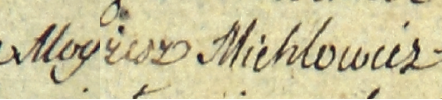 Moyżesz Michlowicz